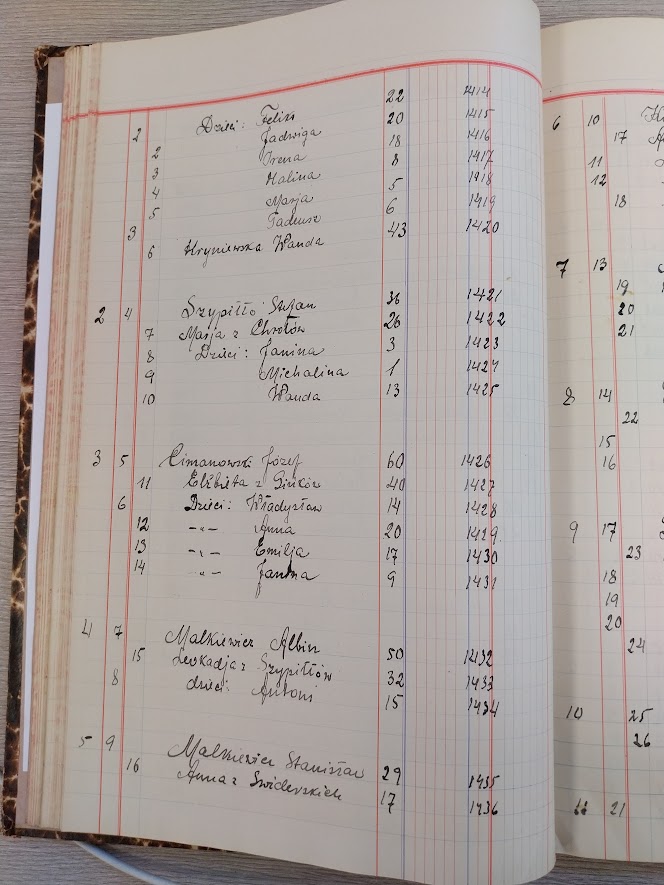 2 Dzieci: Felix 22 1414
2 Jadwiga 20 1415
3 Irena 18 1416
4 Halina 8 1417
5 Marja 5 1418
3 Tadeusz 6 1419
6 Hryniewska Wanda 43 1420
2 4 Szypiłło Stefan 36 1421
7 Marja z Chrołów 26 1422
8 Dzieci: Janina 3 1423
9 Michalina 1 1424
10 Wanda 13 1425
3 5 Cimanowski Józef 60 1426
11 Elżbieta z 40 1427
6 Dzieci: Władysław 14 1428
12 -"- Anna 20 1429
13 -"- Emilja 17 1430
14 -"- Janina 9 1431
4 7 Małkiewicz Albin 50 1432
15 Leokadja z Szypiłłów 32 1433
8 dzieci: Antoni 15 1434
5 9 Małkiewicz Stanisław 29 1435
16 Anna z Świderskich 17 1436
6 10
17
11
12
18
7 13
19
20
21
8 14
22
15
16
9 17
23
18
19
20
24
10 25
26
11 21